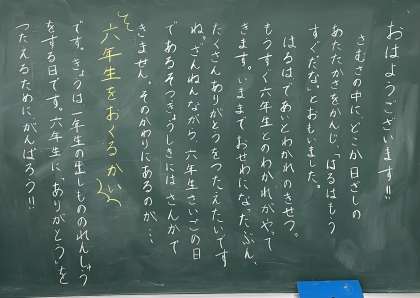 おはようございます!!
さむさの中に、どこか日ざしの
あたたかさをかんじ、「はるはもう
すぐだな。」とおもいました。
はるはであいとわかれのきせつ。
もうすぐ六年生とのわかれがやって
きます。いままでおせわになったぶん、
たくさんありがとうをつたえたいです
ね。ざんねんながら六年生さいごの日
であるそつぎょうしきにはさんかで
きません。そのかわりにあるのが、…
そ六年生をおくるかい
です。きょうは一年生の出しもののれんしゅう
をする日です。六年生に、「ありがとう」を
つたえるために、がんばろう!!